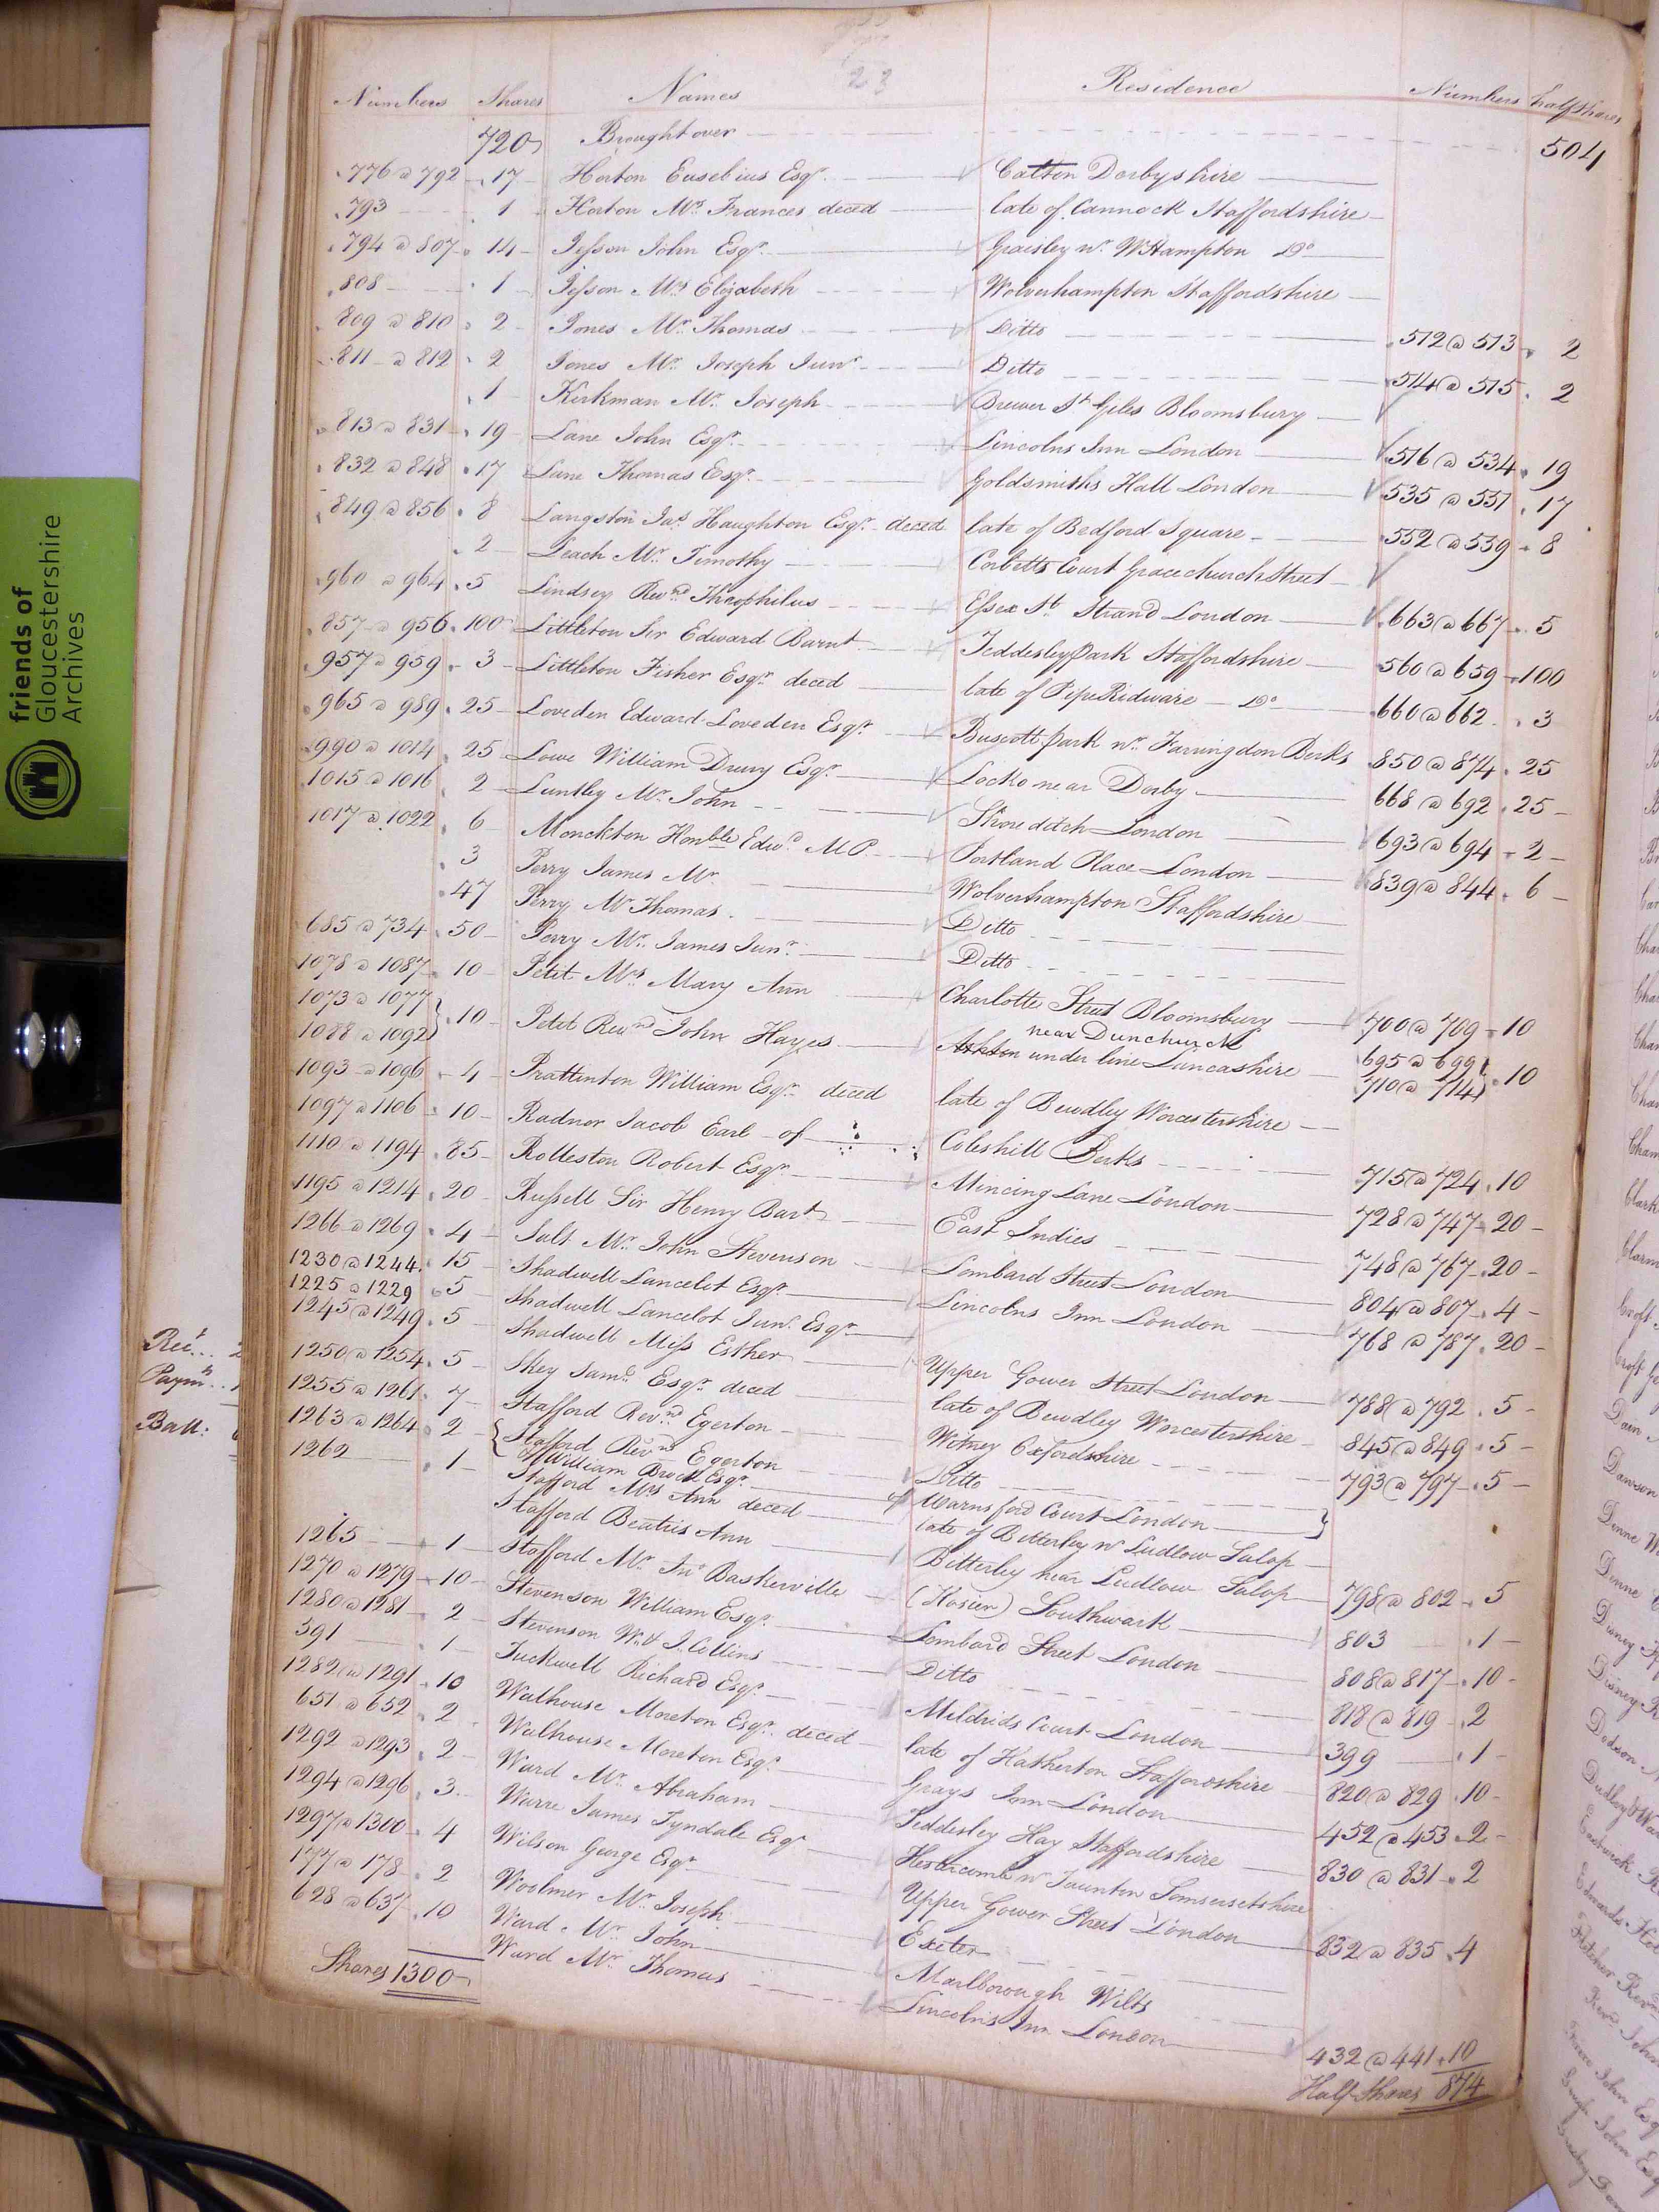 23
Numbers Shares Names Residence Numbers half shares
720 Brought over 504
776 @ 792 17 Horton Eusebius Esqr. Catton Derbyshire
793 1 Horton Mrs Frances deced late of Cannock Staffordshire
794 @ 807 14 Jesson John Esqr. Graisley nr. WHampton Do
808 1 Jesson Mrs Elizabeth Wolverhampton Staffordshire
809 @ 810 2 Jones Mr. Thomas Ditto 512 @ 513 2
811 @ 812 2 Jones Mr. Joseph Junr Ditto 514 @ 515 2
1 Kirkman Mr. Joseph Brewer St Giles Bloomsbury
813 @ 831 19 Lane John Esqr. Lincolns Inn London 516 @ 534 19
832 @ 848 17 Lane Thomas Esqr. Goldsmiths Hall London 535 @ 551 17
849 @ 856 8 Langston Jas Haughton Esqr. deced late of Bedford Square 552 @ 559 8
2 Leach Mr. Timothy Corbetts Court Gracechurch Street
960 @ 964 5 Lindsey Revnd Theophilus Essex St Strand London 663 @ 667 5
857 @ 956 100 Littleton Sir Edward Barnt Teddesley park Staffordshire 560 @ 659 100
957 @ 959 3 Littleton Fisher Esqr. deced late of Pipe Ridware Do 660 @ 662 3
965 @ 989 25 Loveden Edward Loveden Esqr Buscott park nr. Farringdon Berks 850 @ 874 25
990 @ 1014 25 Lowe William Drury Esqr. Locko near Derby 668 @ 692 25
1015 @ 1016 2 Luntley Mr. John Shoreditch London 693 @ 694 2
1017 @ 1022 6 Monckton Honble Edwd. M P. Portland Place London 839 @ 844 6
3 Perry James Mr. Wolverhampton Staffordshire
47 Perry Mr Thomas. Ditto
685 @ 734 50 Perry Mr. James Junr. Ditto
1078 @ 1087 10 Petit Mrs Mary Ann Charlotte Street Bloomsbury 700 @ 709 10
near Dunchurch
1073 @ 1077 695 @ 699
1088 @ 1092 10 Petit Revnd John Hayes Ashton under line Lancashire 710 @ 714 10
1093 @ 1096 4 Prattinton William Esqr. deced late of Bewdley Worcestershire
1097 @ 1106 10 Radnor Jacob Earl of Coleshill Berks 715 @ 724 10
1110 @ 1194 85 Rolleston Robert Esqr. Mincing Lane London 728 @ 747 20
1195 @ 1214 20 Russell Sir Henry Bart East Indies 748 @ 767 20
1266 @ 1269 4 Salt Mr. John Stevenson Lombard Street London 804 @ 807 4
1230 @ 1244 15 Shadwell Lancelot Esqr. Lincolns Inn London 768 @ 787 20
1225 @ 1229 5 Shadwell Lancelot Junr. Esqr.
1245 @ 1249 5 Shadwell Miss Esther Upper Gower Street London 788 @ 792 5
1250 @ 1254 5 Skey Saml. Esqr. deced late of Bewdley Worcestershire 845 @ 849 5
1255 @ 1261 7 Stafford Revnd. Egerton Witney Oxfordshire 793 @ 797 5
1263 @ 1264 2 Stafford Revnd Egerton Ditto
William Brock Esqr. Warnsford Court London
1262 1 Stafford Mrs Ann deced late of Bitterley nr Ludlow Salop
Stafford Beatris Ann Bitterley near Ludlow Salop 798 @ 802 5
1265 1 Stafford Mr. Jno Baskerville (Hosier) Southwark 803 1
1270 @ 1279 10 Stevenson William Esqr. Lombard Street London 808 @ 817 10
1280 @ 1281 2 Stevenson W. & J. Collins Ditto 818 @ 819 2
391 1 Tuckwell Richard Esqr. Mildrids Court London 399 1
1282 @ 1291 10 Walhouse Moreton Esqr. deced late of Hatherton Staffordshire 820 @ 829 10
651 @ 652 2 Walhouse Moreton Esqr. Grays Inn London 452 @ 453 2
1292 @ 1293 2 Ward Mr. Abraham Teddesley Hay Staffordshire 830 @ 831 2
1294 @ 1296 3 Warre James Tyndale Esqr Hestercomb nr Taunton Somersetshire
1297 @ 1300 4 Wilson George Esqr. Upper Gower Street London 832 @ 835 4
177 @ 178 2 Woolmer Mr. Joseph Exeter
Ward Mr. John Marlborough Wilts
628 @ 637 10 Ward Mr. Thomas Lincolns Inn London 432 @ 441 10
Shares 1300 Half Shares 874
Rect.
Paymts
Ball:
friends of
Gloucestershire
Archives